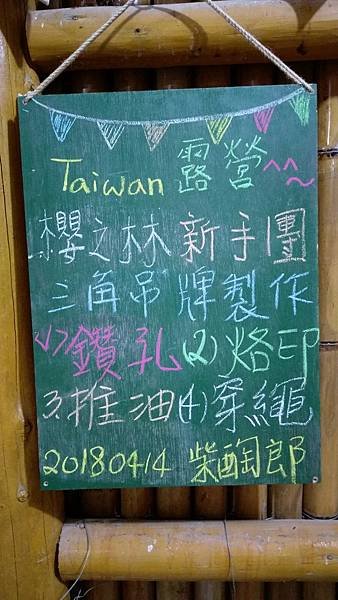 Taiwan 露營^^~
櫻之林新手團
三角吊牌製作
(1)鑽孔(2)烙印
3.推油(4)穿繩
20180414 柴陶郎